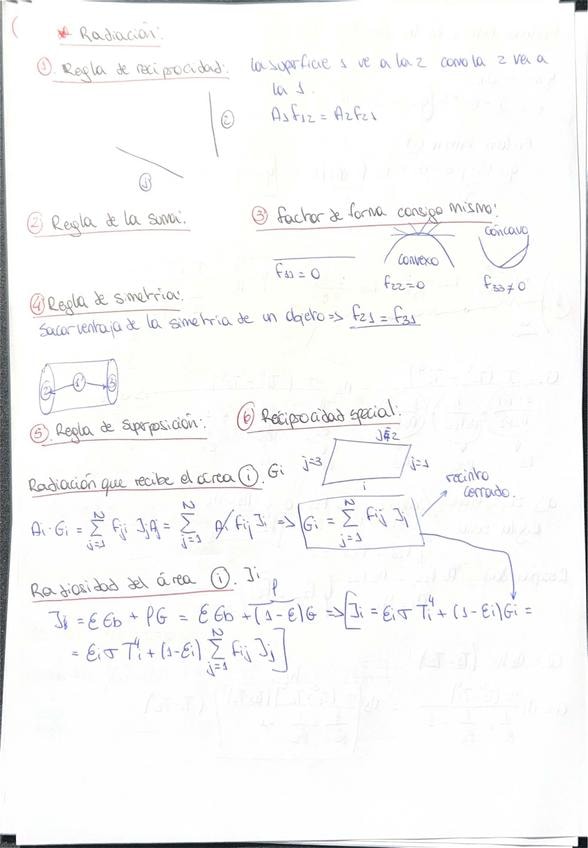 * Radiación:
① Regla de reciprocidad: la superficie 1 ve a la 2 como la 2 ve a
la 1.
A1 F12 = A2 F21
②
①
② Regla de la suma:
③ factor de forma consigo mismo:
F11 = 0
convexo
F22 = 0
cóncavo
F33 ≠ 0
④ Regla de simetría:
Sacar ventaja de la simetría de un objeto => F21 = F31
② ① ③
⑤ Regla de superposición:
⑥ Reciprocidad especial:
j=2
j=3
j=1
i
Radiación que recibe el área ⓘ. Gi
recinto
cerrado.
Ai·Gi = ∑_{j=1}^{N} Fji Jj Aj = ∑_{j=1}^{N} Ai Fij Jj => Gi = ∑_{j=1}^{N} Fij Jj
Radiosidad del área ⓘ. Ji
ρ
Ji = εEb + ρG = εEb + (1-ε)G => [Ji = εi σ Ti⁴ + (1-εi)Gi =
= εi σ Ti⁴ + (1-εi) ∑_{j=1}^{N} Fij Jj]